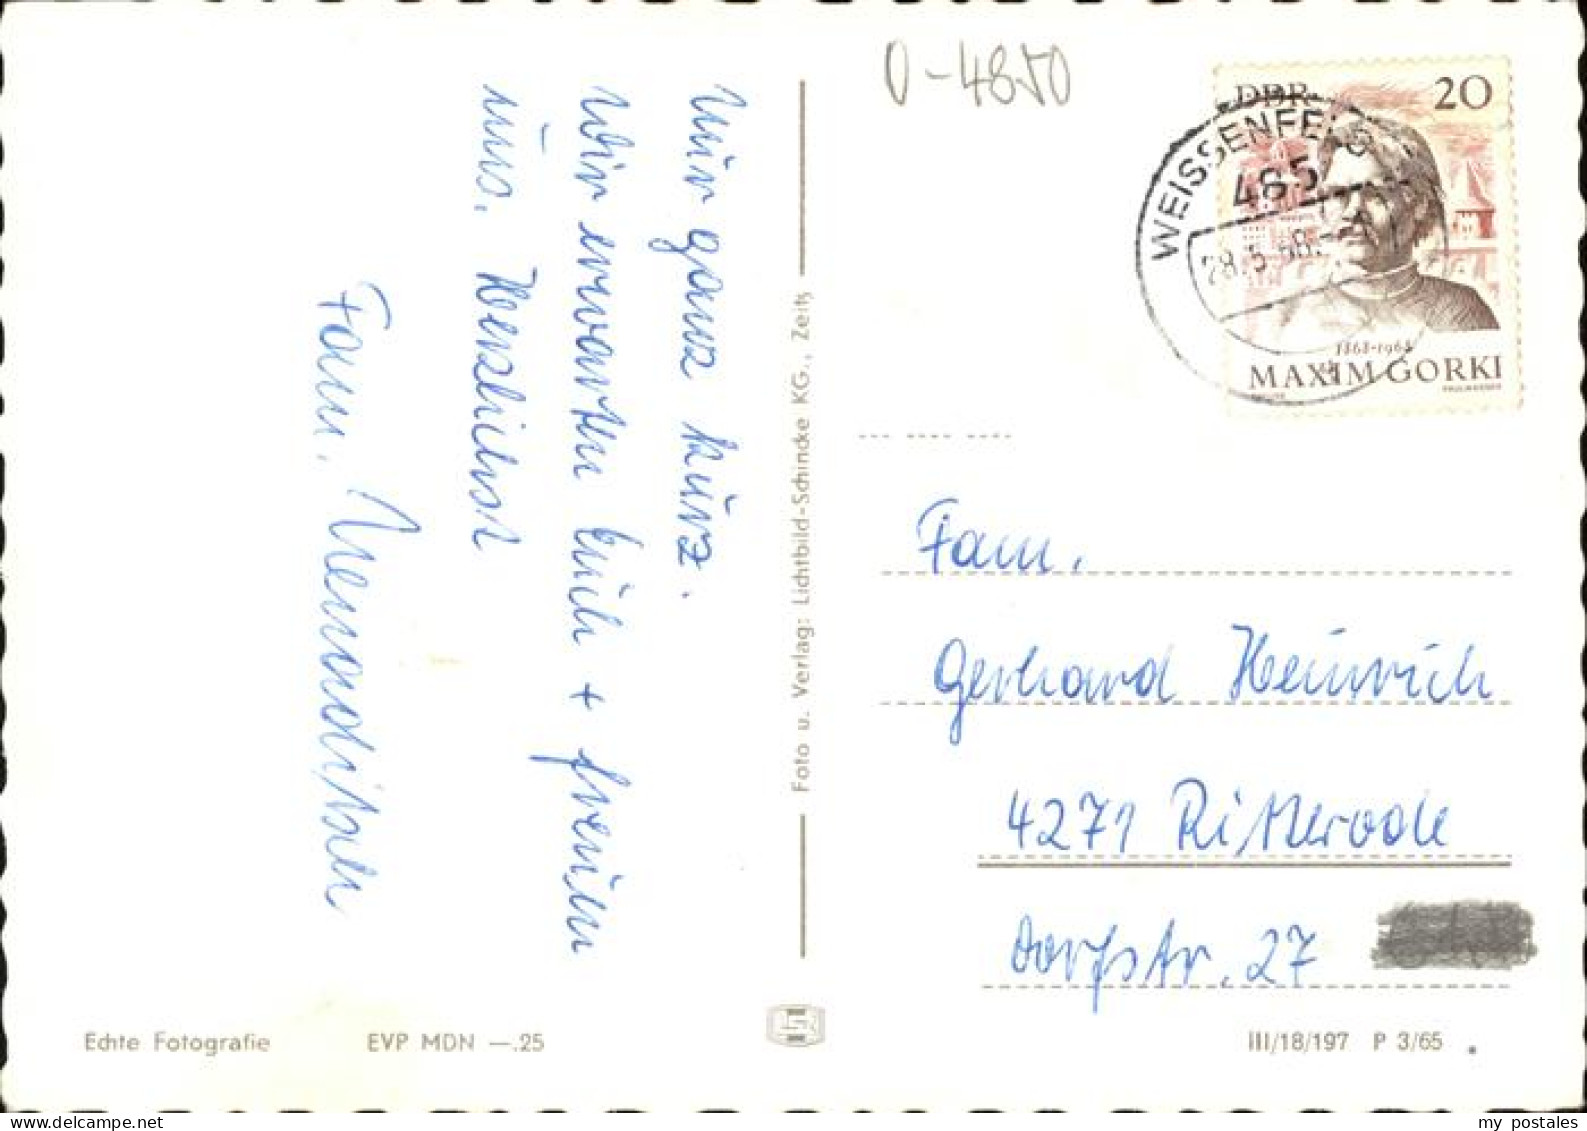 Nur ganz kurz.
Wir erwarten Euch + freuen
uns. Herzlichst
Fam.
Foto u. Verlag: Lichtbild-Schincke KG., Zeitz
0-4850
DDR 20
WEISSENFELS
485
28.5.68.
1868-1968
MAXIM GORKI
Fam.
Gerhard Heinrich
4271 Ritterode
Dorfstr. 27
Echte Fotografie EVP MDN —.25
III/18/197 P 3/65
my postales